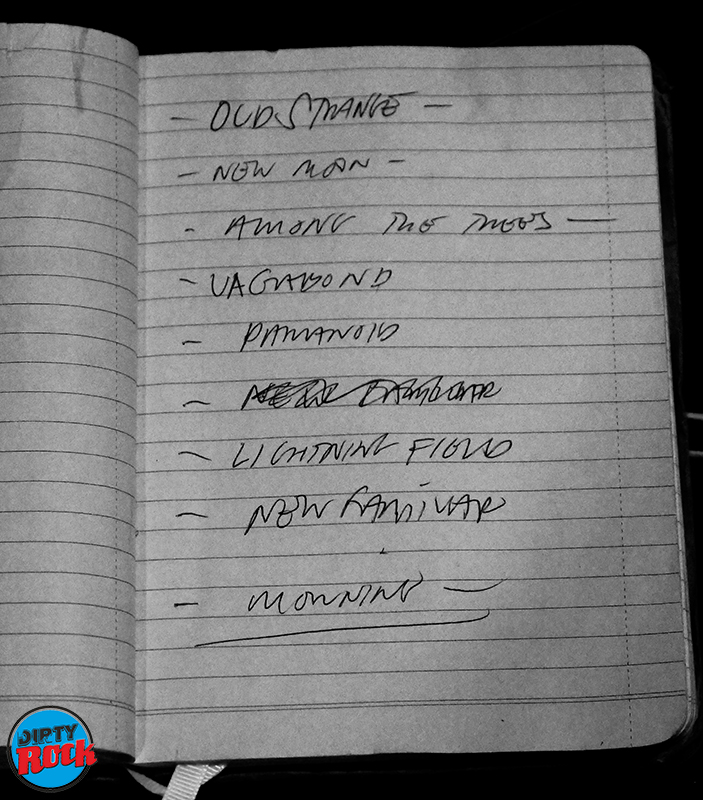 - OLD STRANGE -
- NEW MAN -
- AMONG THE TREES -
- VAGABOND
- PARANOID
- LIGHTNING FIELD
- NEW FAMILIAR
- MORNING -
DIRTY
Rock